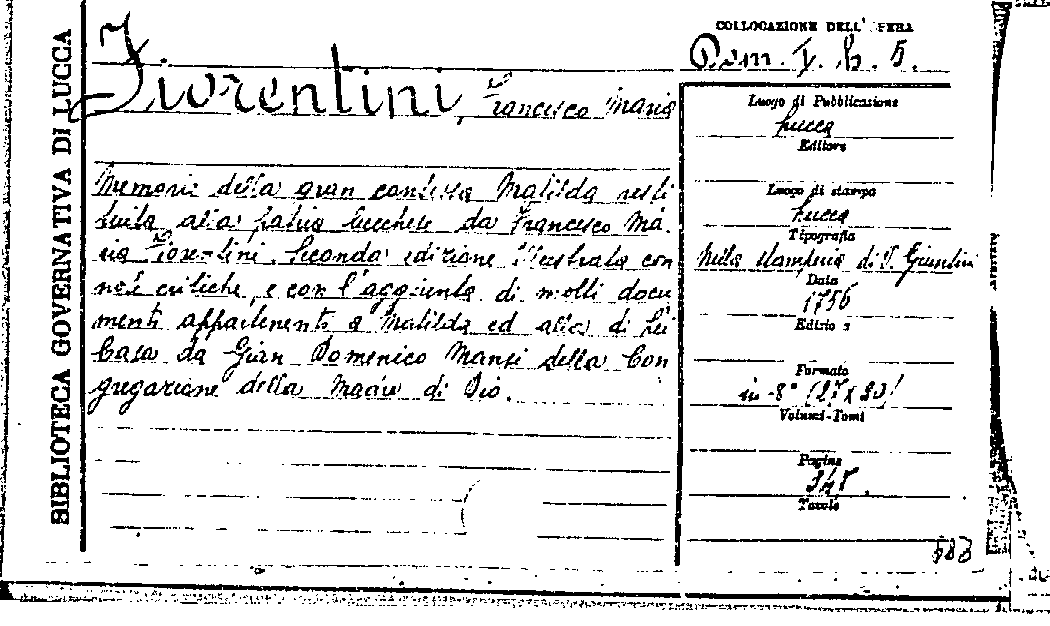 BIBLIOTECA GOVERNATIVA DI LUCCA
COLLOCAZIONE DELL'OPERA
Rom. I. h. 5.
Fiorentini, Francesco Maria
Memorie della gran contessa Matilda resti
tuita alla patria lucchese da Francesco Ma-
ria Fiorentini. Seconda edizione illustrata con
note critiche, e con l'aggiunta di molti docu
menti appartenenti a Matilda ed alla di Lei
Casa da Gian Domenico Mansi della Con
gregazione della Madre di Dio.
Luogo di Pubblicazione
Lucca
Editore
Luogo di stampa
Lucca
Tipografia
Nella stamperia di J. Giuntini
Data
1756
Edizione
Formato
in-8°
Volumi-Tomi
Pagine
Tavole
583